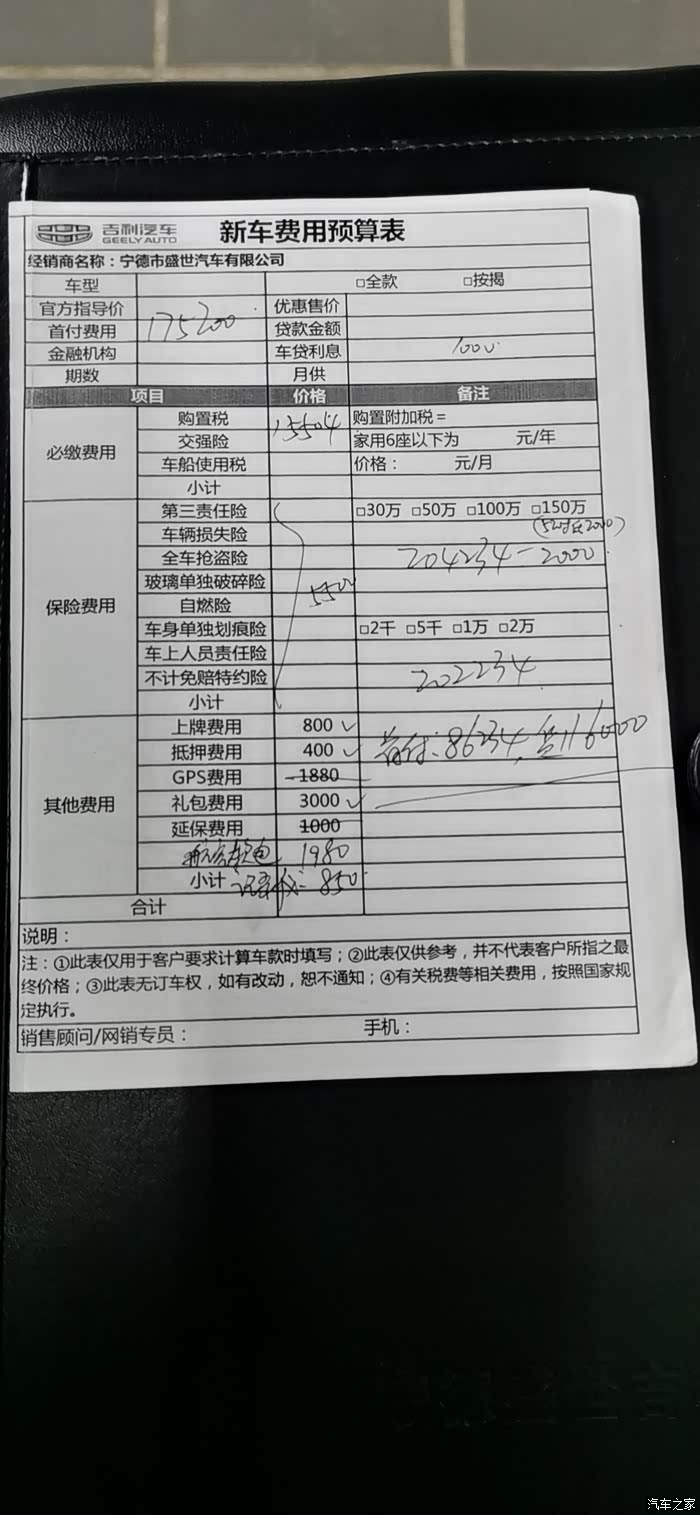 吉利汽车
GEELY AUTO
新车费用预算表
经销商名称：宁德市盛世汽车有限公司
车型 □全款 □按揭
官方指导价 175200 优惠售价
首付费用 贷款金额
金融机构 车贷利息 1000
期数 月供
项目 价格 备注
必缴费用
购置税 15504 购置附加税＝
交强险 家用6座以下为 元/年
车船使用税 价格： 元/月
小计
保险费用
第三责任险 □30万 □50万 □100万 □150万
车辆损失险
全车抢盗险 204234-2000
玻璃单独破碎险 5500
自燃险
车身单独划痕险 □2千 □5千 □1万 □2万
车上人员责任险
不计免赔特约险 202234
小计
其他费用
上牌费用 800 ✓
抵押费用 400 ✓ 首付：86234，贷116000
GPS费用 1880
礼包费用 3000 ✓
延保费用 1000
1980
小计 记录仪：850
合计
说明：
注：①此表仅用于客户要求计算车款时填写；②此表仅供参考，并不代表客户所指之最
终价格；③此表无订车权，如有改动，恕不通知；④有关税费等相关费用，按照国家规
定执行。
销售顾问/网销专员： 手机：
汽车之家